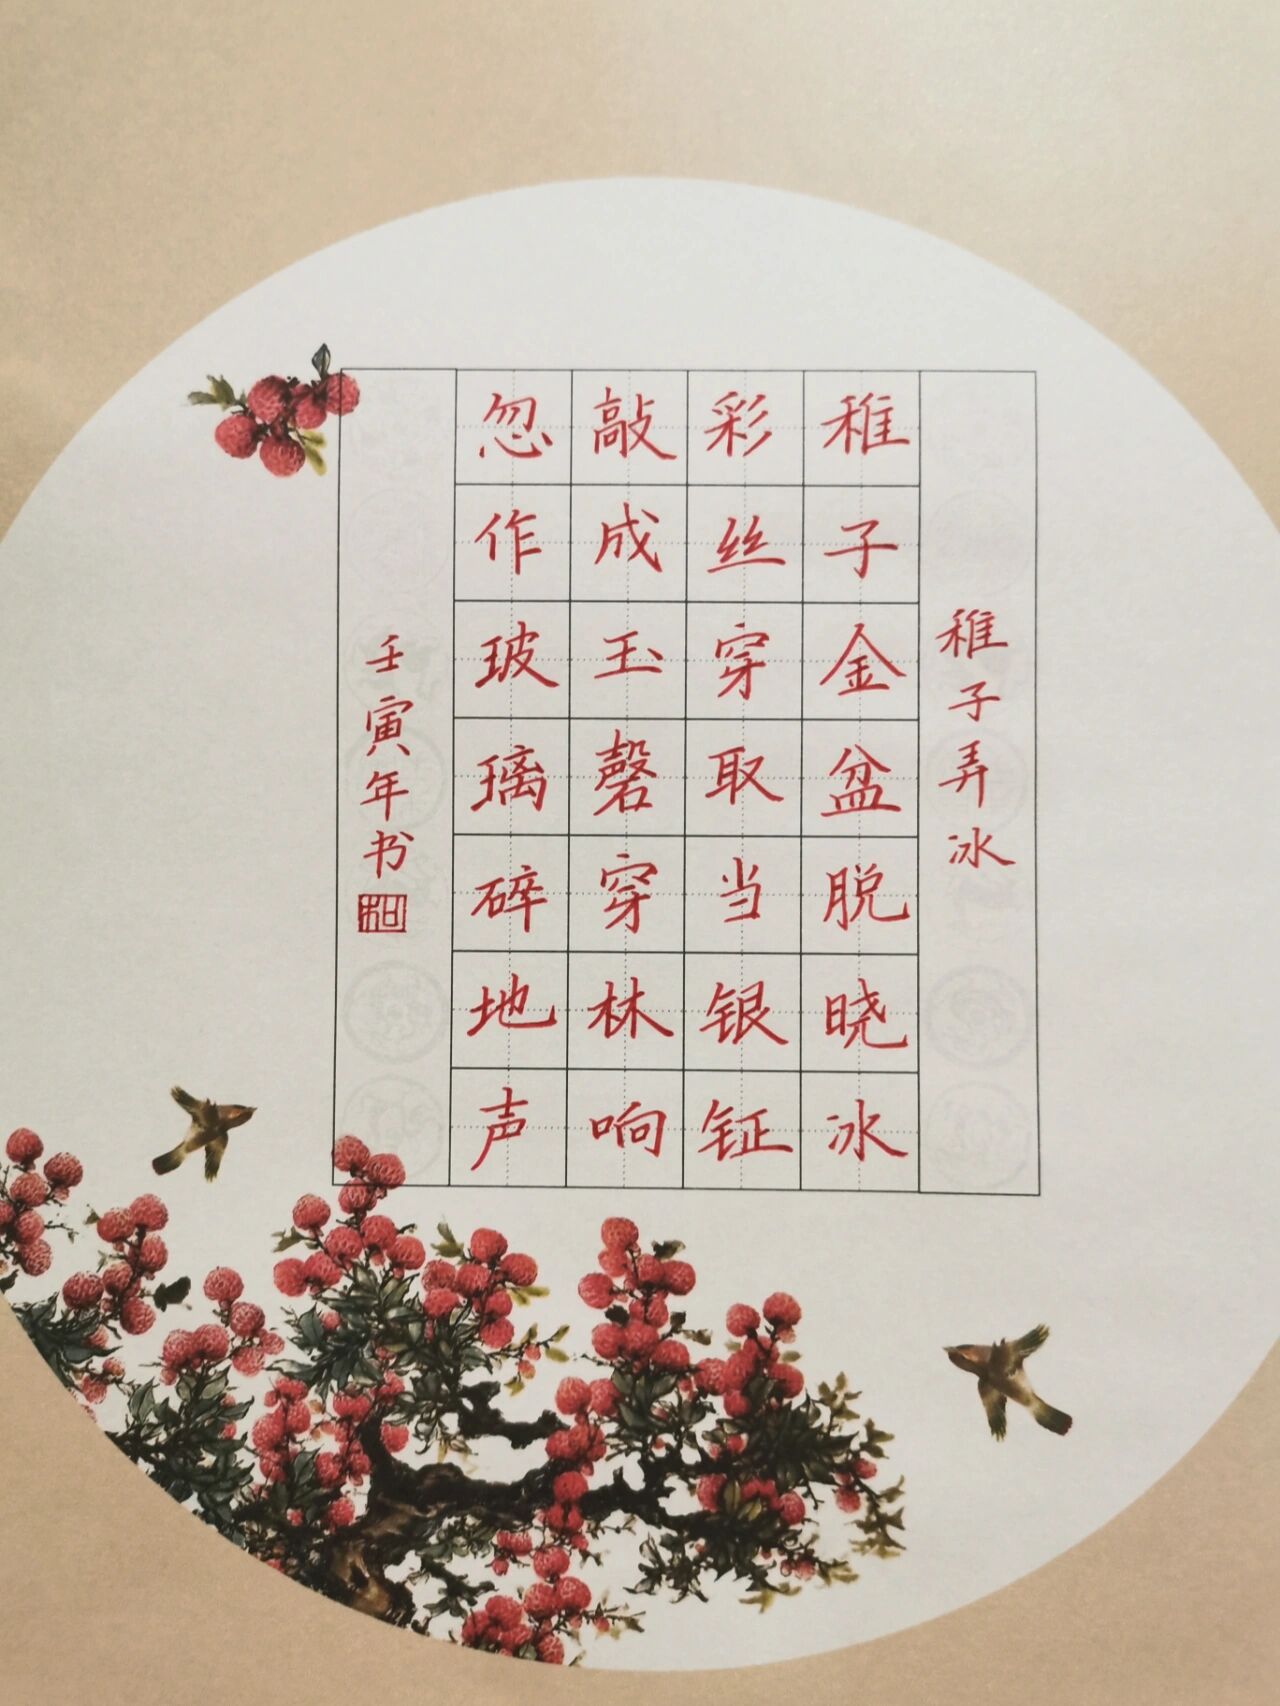 稚子弄冰
稚子金盆脱晓冰
彩丝穿取当银钲
敲成玉磬穿林响
忽作玻璃碎地声
壬寅年书